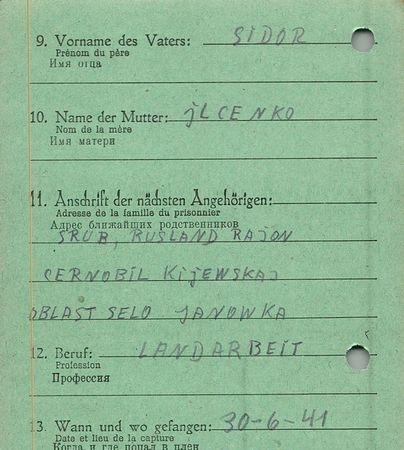 9. Vorname des Vaters: SIDOR
Prénom du père
Имя отца
10. Name der Mutter: jLCENKO
Nom de la mère
Имя матери
11. Anschrift der nächsten Angehörigen:
Adresse de la famille du prisonnier
Адрес ближайших родственников
SRUB, RUSLAND RAJON
CERNOBIL KijEWSKAJ
OBLAST SELO JANOWKA
12. Beruf: LANDARBEIT
Profession
Профессия
13. Wann und wo gefangen: 30-6-41
Date et lieu de la capture
Когда и где попал в плен